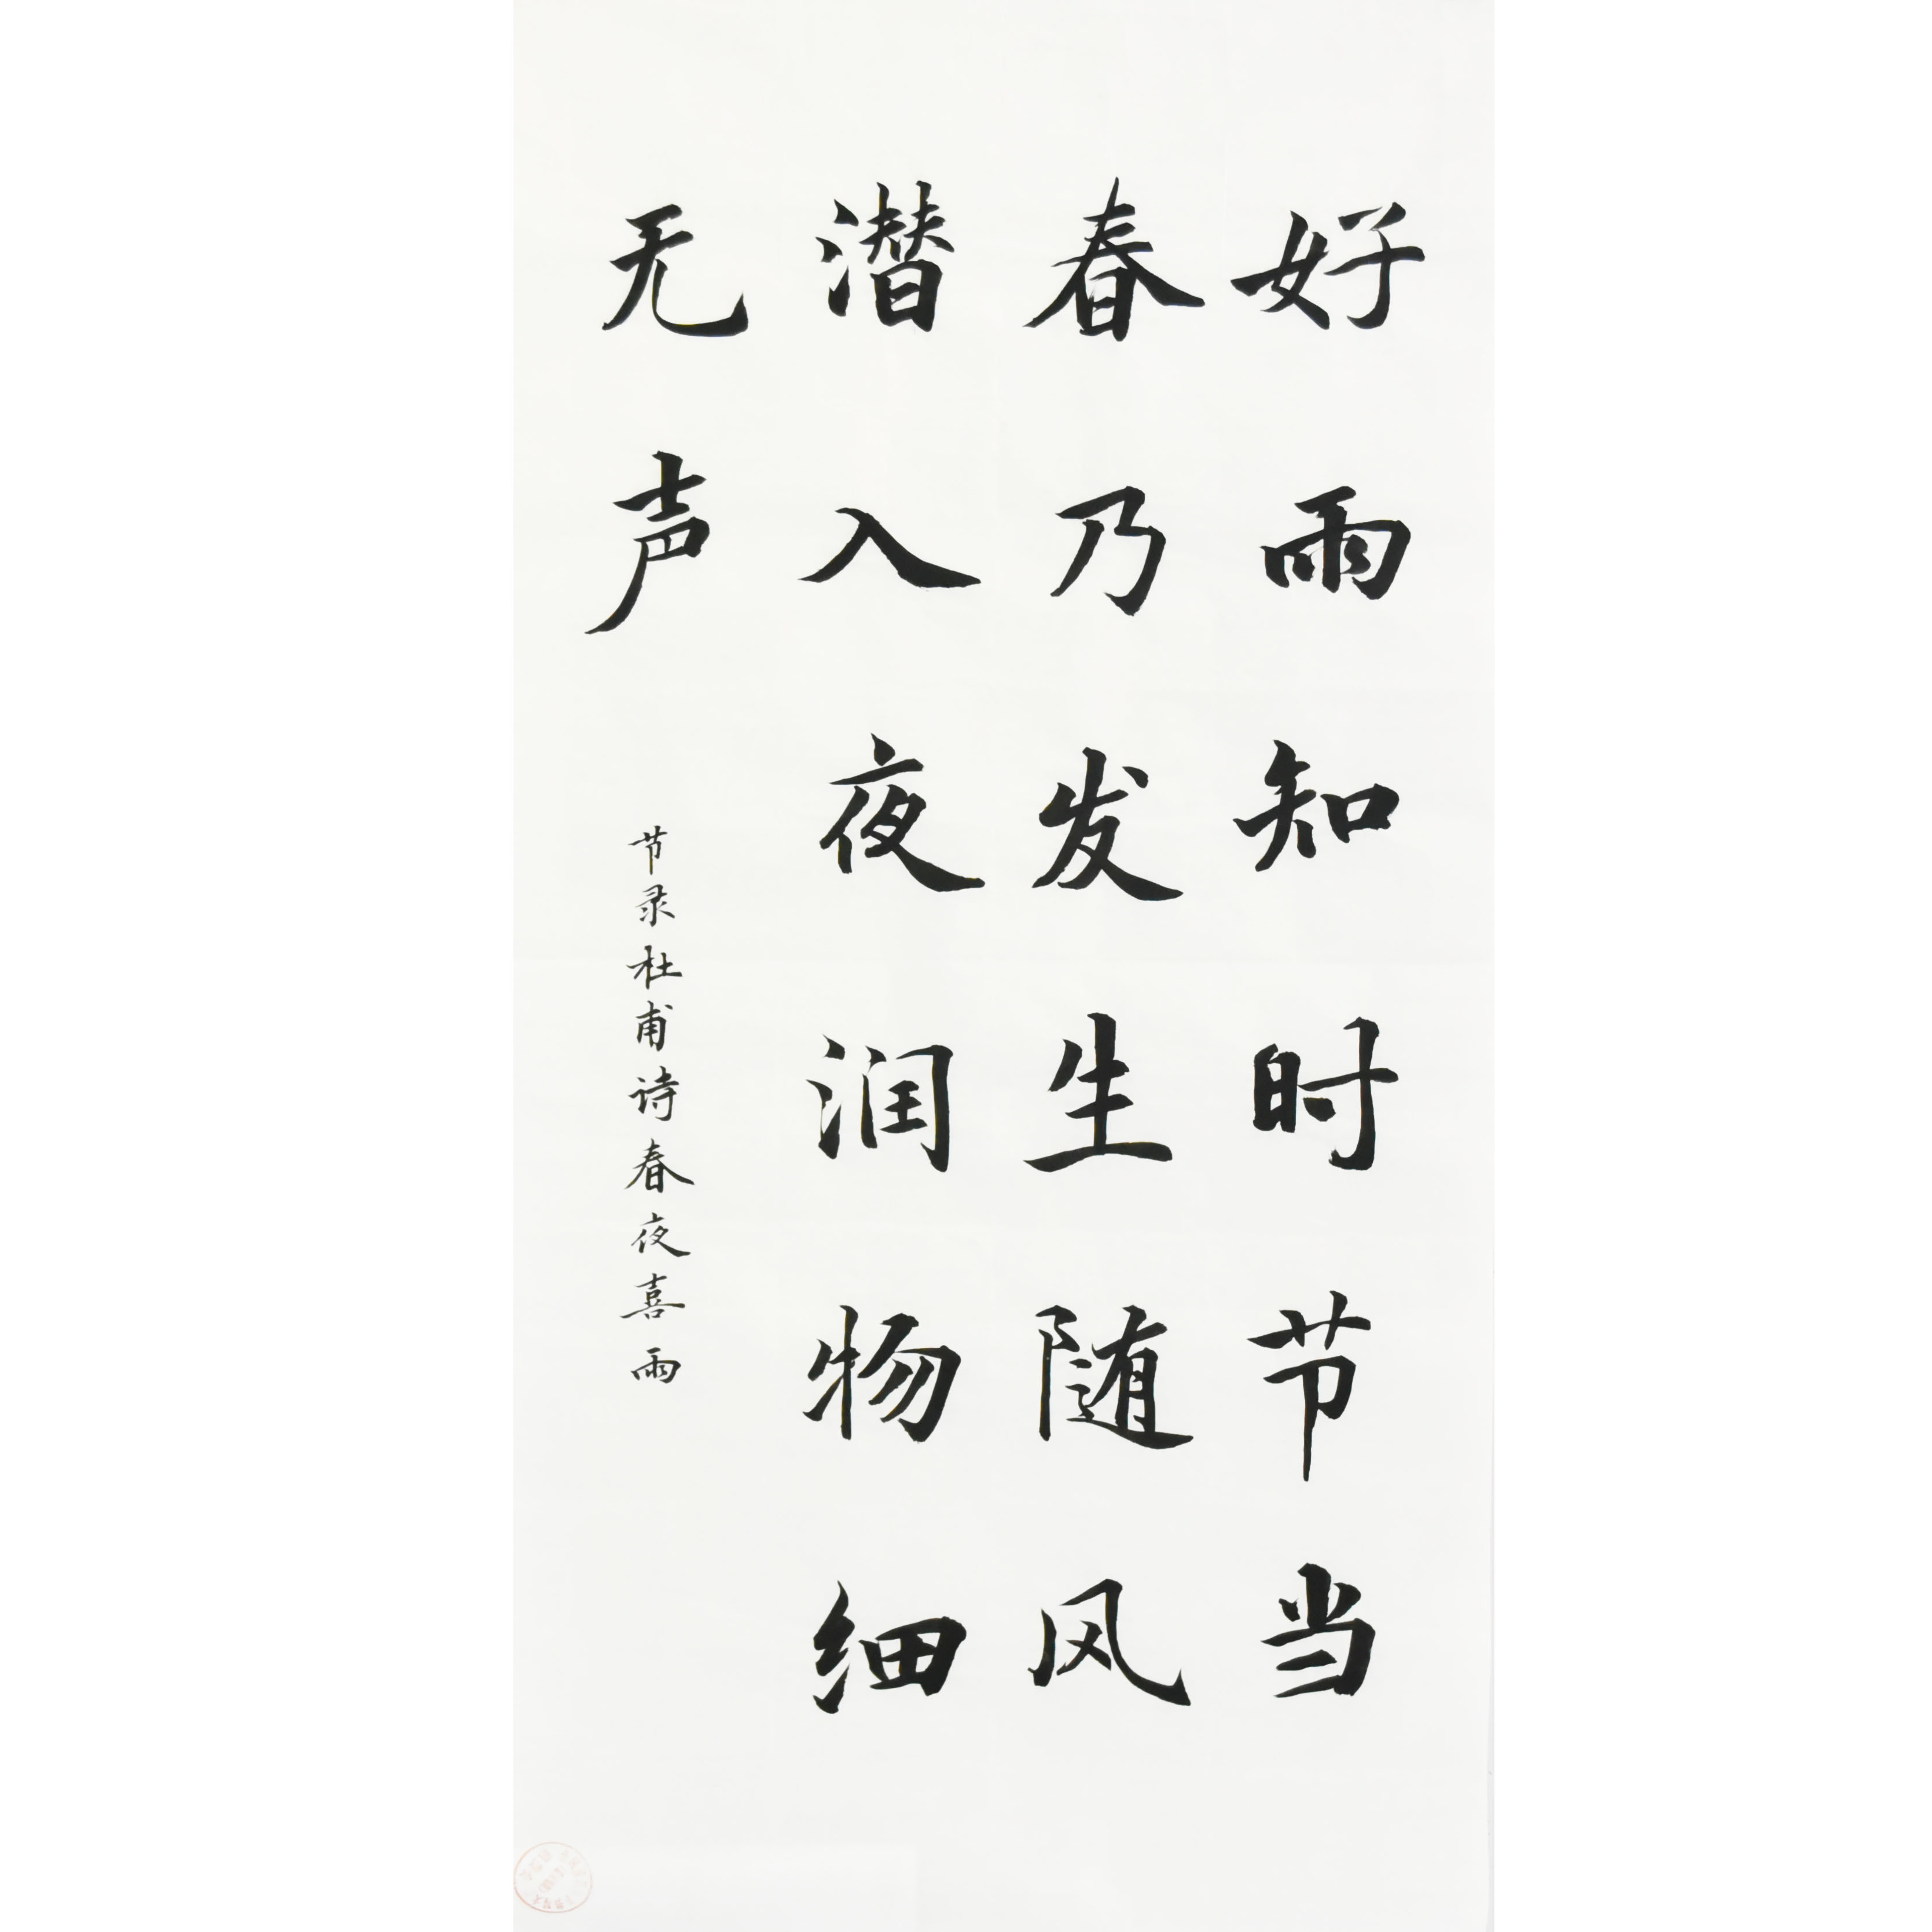 好雨知时节当
春乃发生随风
潜入夜润物细
无声
节录杜甫诗春夜喜雨